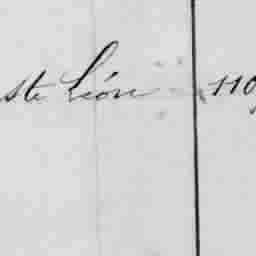 ste Léon 110